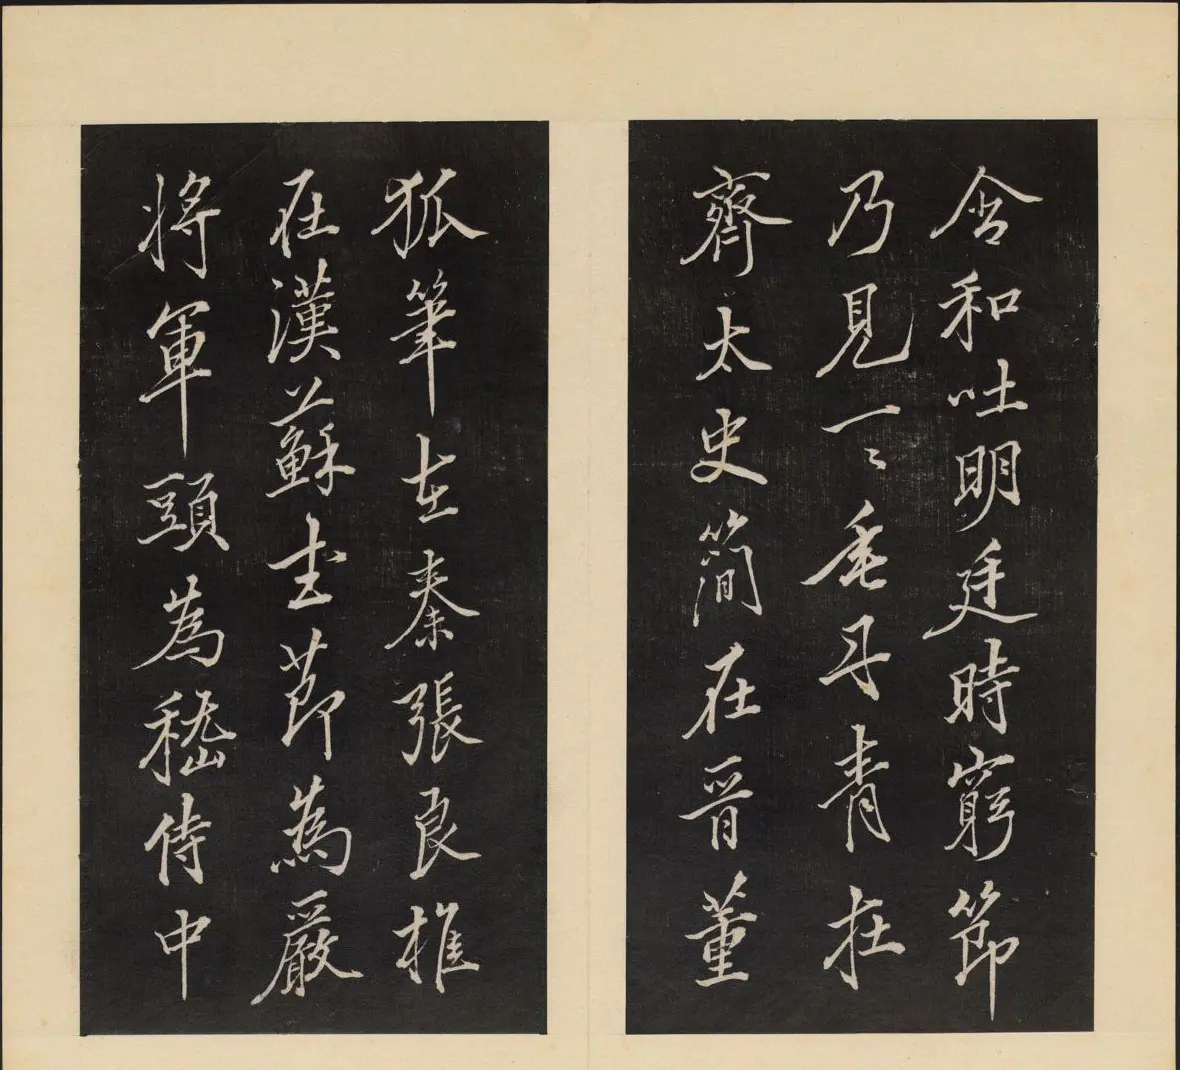 含和吐明廷時窮節
乃見一〻垂丹青在
齊太史簡在晉董
狐筆在秦張良椎
在漢蘇武節為嚴
將軍頭為嵇侍中